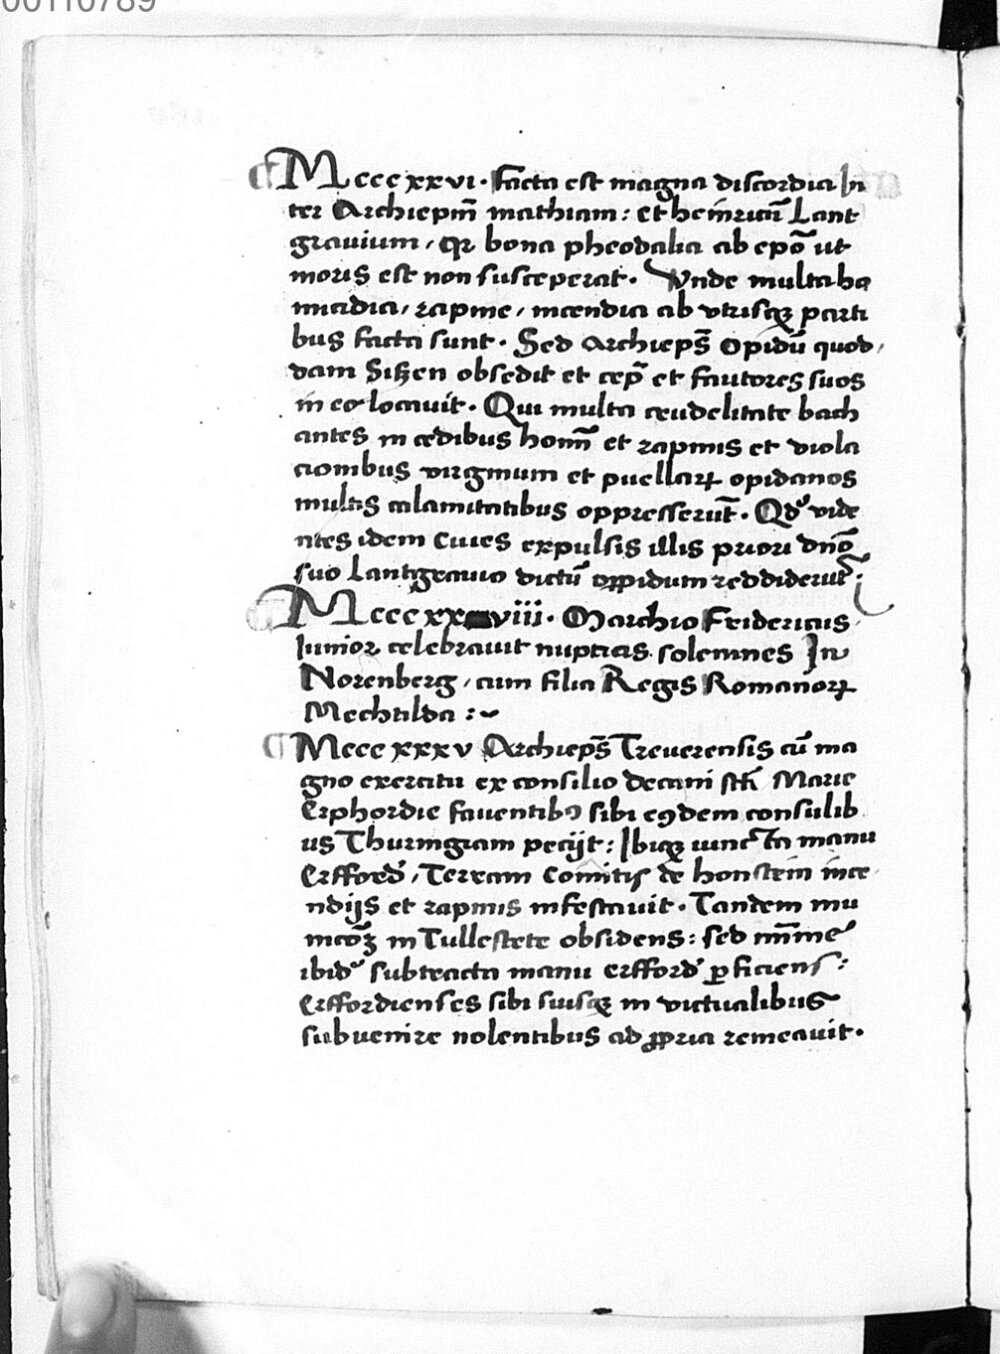 00110789
¶ Mcccxxvi. Facta est magna discordia In
ter Archiepm̄ mathiam: et heinricū Lant
grauium, qꝛ bona pheodalia ab epō ut
moris est non susceperat. Vnde multa ho
micidia, rapine, incendia ab vtrisqꝫ parti
bus facta sunt. Sed Archieps̄ opidū quod
dam Gißen obsedit et cep̄ et fautores suos
in eo locauit. Qui multa crudelitate bach
antes in cedibus hom̄ et rapinis et viola
cionibus virginum et puellaꝝ opidanos
multis calamitatibus oppresserūt. Qd' vide
ntes idem Ciues expulsis illis priori dnō
suo Lantgrauio dictū oppidum reddiderūt:
¶ Mcccxxviii. Marchio Fridericus
Iunior celebrauit nuptias solemnes In
Norenberg, cum filia Regis Romanoꝝ
Mechtilda :~
¶ Mcccxxxv Archieps̄ Treuerensis cū ma
gno exercitu ex consilio decani scti Marie
Erphordie fauentibꝰ sibi eꝯdem consulib
us Thuringiam peciit: Ibiqꝫ iuncta manu
Erfford', Terram Comitis de honstein ince
ndijs et rapinis infestauit. Tandem mu
nicōꝫ in Tullestete obsidens: sed minime
ibid' subtracta manu erfford' ꝓficiens:
Erffordienses sibi suisqꝫ in victualibus
subuenire nolentibus ad ꝓpria remeauit.